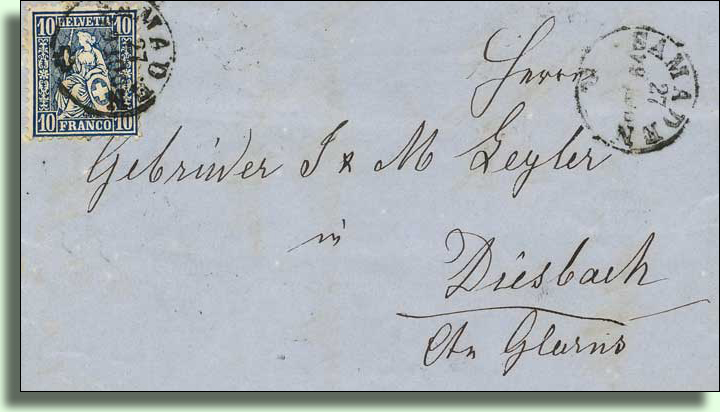 10 HELVETIA 10
10 FRANCO 10
SAMADEN
27
Herrn
Gebrüder J & M Legler
in
Diesbach
Ctn Glarus